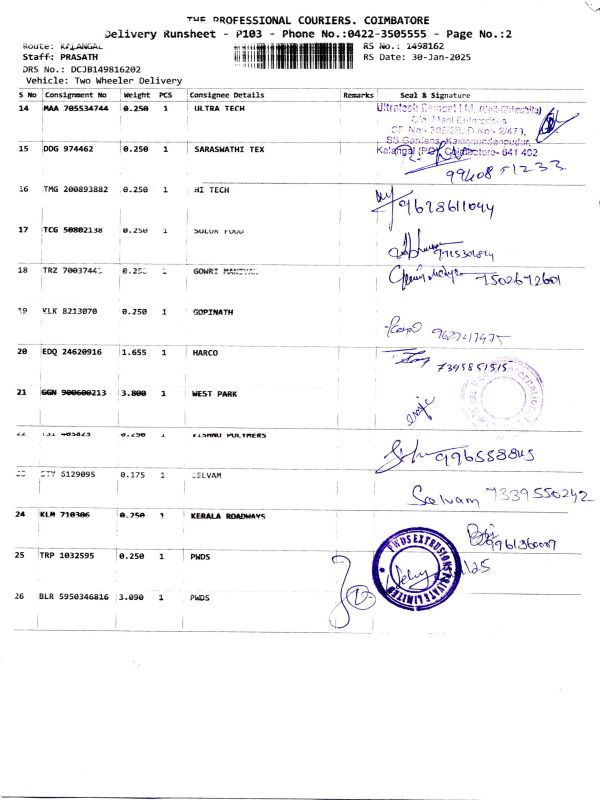 THE PROFESSIONAL COURIERS. COIMBATORE
Delivery Runsheet - P103 - Phone No.:0422-3505555 - Page No.:2
Route: KALANGAL RS No.: 1498162
Staff: PRASATH RS Date: 30-Jan-2025
DRS No.: DCJB149816202
Vehicle: Two Wheeler Delivery
S No Consignment No Weight PCS Consignee Details Remarks Seal & Signature
14 MAA 705534744 0.250 1 ULTRA TECH Ultratech Cement Ltd.
SS Gardens,
15 DDG 974462 0.250 1 SARASWATHI TEX Kalangal (PO), Coimbatore- 641 402
16 TMG 200893882 0.250 1 HI TECH
17 TCG 50802138 0.250 1 SULUR FOOD
18 TRZ 0.250 1 GOWRI 7502672601
19 KLK 8213070 0.250 1 GOPINATH
20 EDQ 24620916 1.655 1 HARCO 7395851515
21 GGN 900600213 3.800 1 WEST PARK
22 TSI 403823 0.250 1 VISHNU POLYMERS 996558845
23 STY 6129095 0.175 1 SELVAM Selvam 7339550242
24 KLM 710306 0.250 1 KERALA ROADWAYS
25 TRP 1032595 0.250 1 PWDS PWDS EXTRUSIONS PRIVATE LIMITED
26 BLR 5950346816 3.090 1 PWDS 2